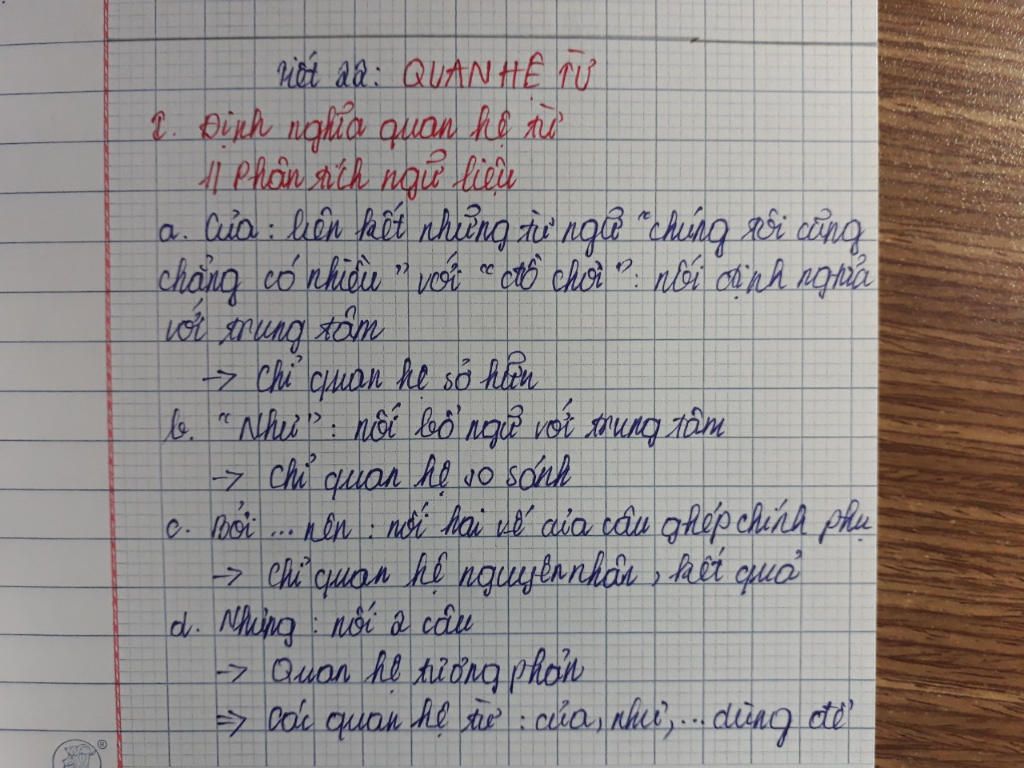 Tiết 22: QUAN HỆ TỪ
I. Định nghĩa quan hệ từ
1) Phân tích ngữ liệu
a. Của: liên kết những từ ngữ "chúng tôi cũng
chẳng có nhiều" với "đồ chơi": nối định nghĩa
với trung tâm
-> Chỉ quan hệ sở hữu
b. "Như": nối bổ ngữ với trung tâm
-> Chỉ quan hệ so sánh
c. Bởi ... nên: nối hai vế của câu ghép chính phụ
-> Chỉ quan hệ nguyên nhân, kết quả
d. Nhưng: nối 2 câu
-> Quan hệ tương phản
=> Các quan hệ từ: của, như,... dùng để